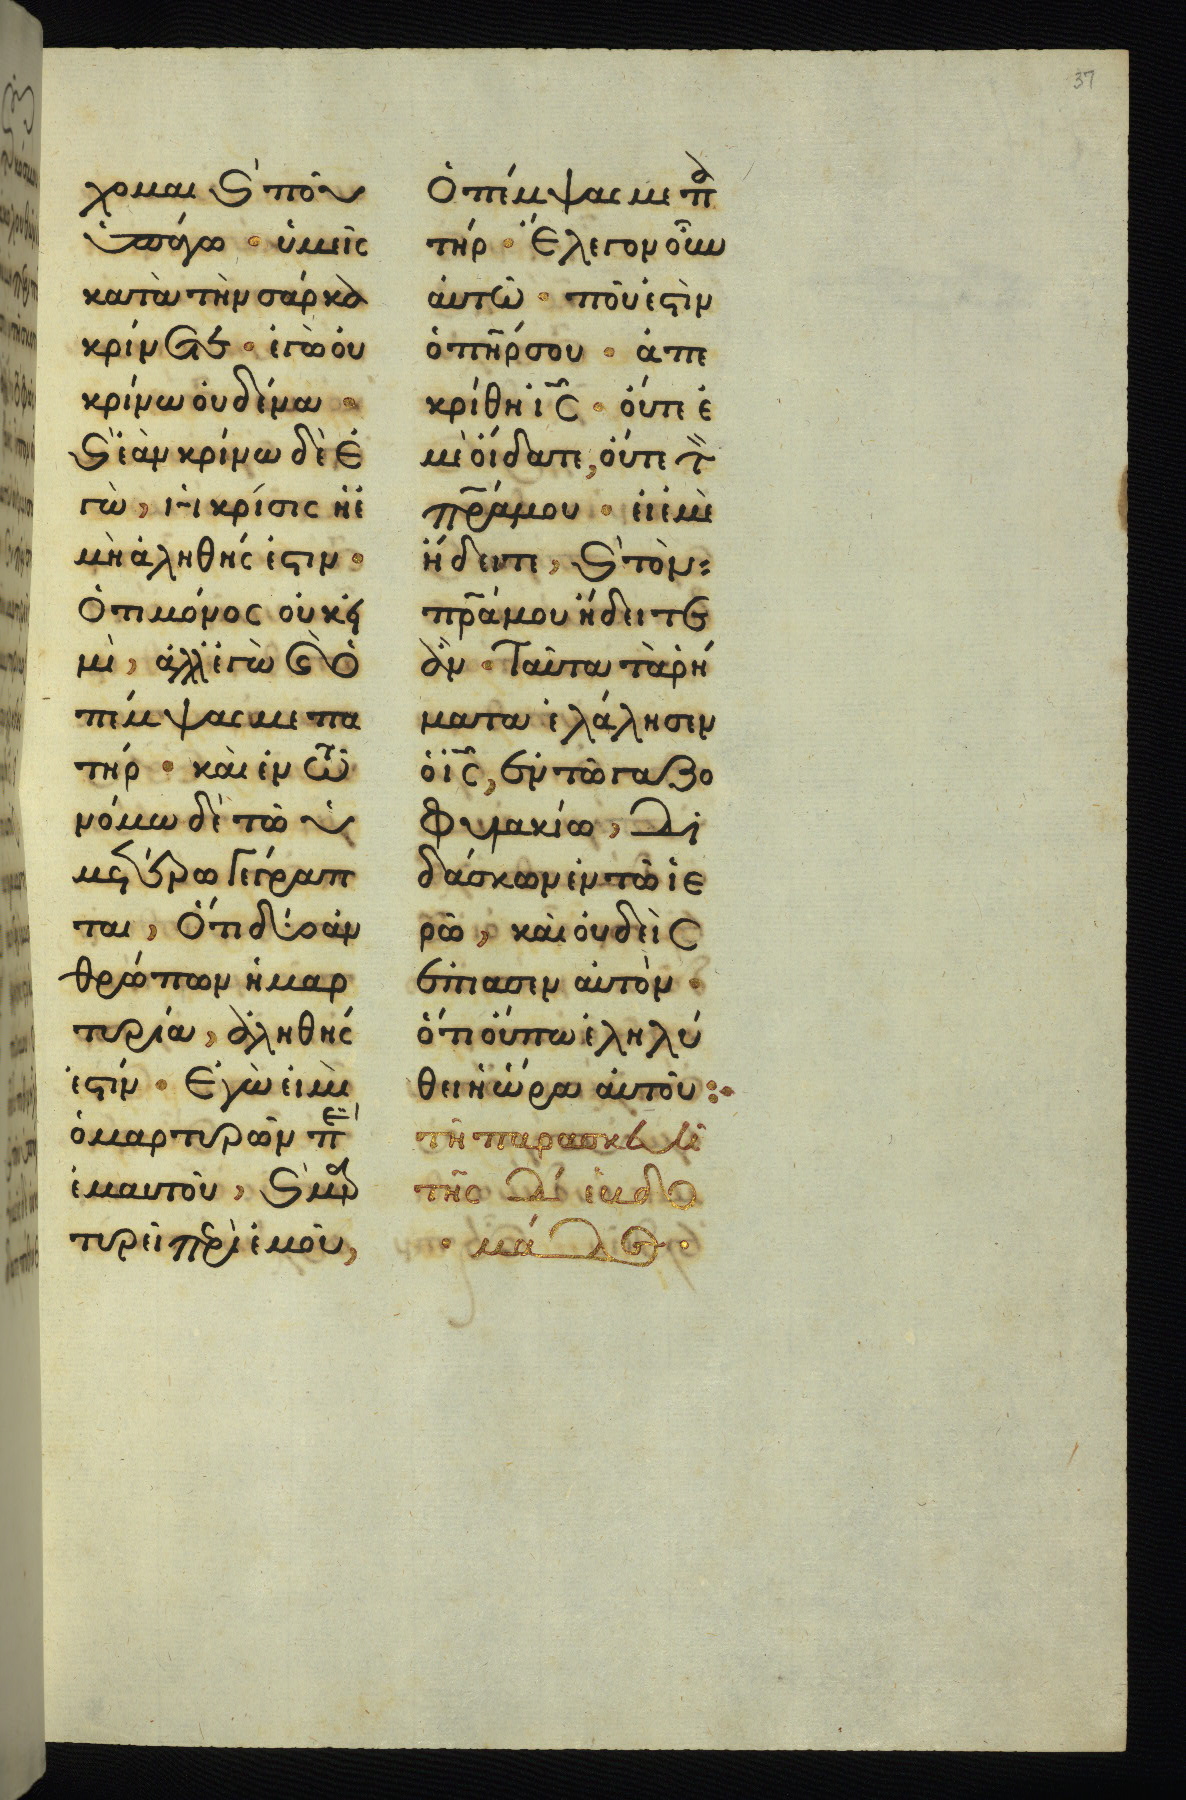 37
χομαι ϗ ποῦ
ὑπάγω · ὑμεῖς
κατὰ τὴν σάρκα
κρίνετε · ἐγὼ οὐ
κρίνω οὐδένα ·
ϗ ἐὰν κρίνω δὲ ἐ
γὼ, ἡ κρίσις ἡ ἐ
μὴ ἀληθής ἐστιν ·
Ὅτι μόνος οὐκ εἰ
μὶ, ἀλλ' ἐγὼ ϗ ὁ
πέμψας με πα
τήρ · καὶ ἐν τῶ
νόμω δὲ τῶ ὑ
μετέρω γέγραπ
ται, Ὅτι δύο ἀν
θρώπων ἡ μαρ
τυρία, ἀληθής
ἐστίν · Ἐγὼ εἰμὶ
ὁ μαρτυρῶν πε
ἐμαυτοῦ, ϗ μαρ
τυρεῖ περὶ ἐμοῦ,
Ὁ πέμψας με πα
τήρ · Ἔλεγον οὖν
αὐτῶ · ποῦ ἐστὶν
ὁ πῆρ σου · ἀπε
κρίθη ὁ ις · οὔτε ἐ
μὲ οἴδατε, οὔτε τὸν
πρα μου · εἰ ἐμὲ
ἤδειτε, ϗ τὸν
πρα μου ἤδειτε
ἄν · Ταῦτα τὰ ῥή
ματα ἐλάλησεν
ὁ ις, ἐν τῶ γαζο
φυλακίω, δι
δάσκων ἐν τῶ ἱε
ρῶ, καὶ οὐδεὶς
ἐπίασεν αὐτὸν ·
ὅτι οὔπω ἐληλύ
θει ἡ ὥρα αὐτοῦ :·
τῆ παρασκευῆ
τῆς δ' ἑβδο
· μάδος ·